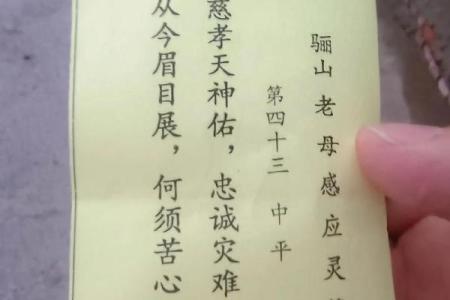 骊山老母感应灵
第四十三 中平
慈孝天神佑，忠诚灾难
从今眉目展，何须苦心